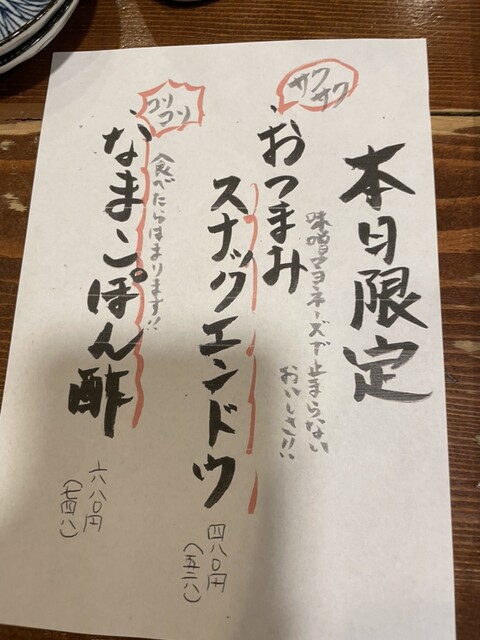 本日限定
味噌マヨネーズで止まらない
おいしさ!!
サク
サク
おつまみ
スナックエンドウ
四八〇円
(五二八)
コリ
コリ
食べたらはまります!!
なまこぽん酢
六八〇円
(七四八)